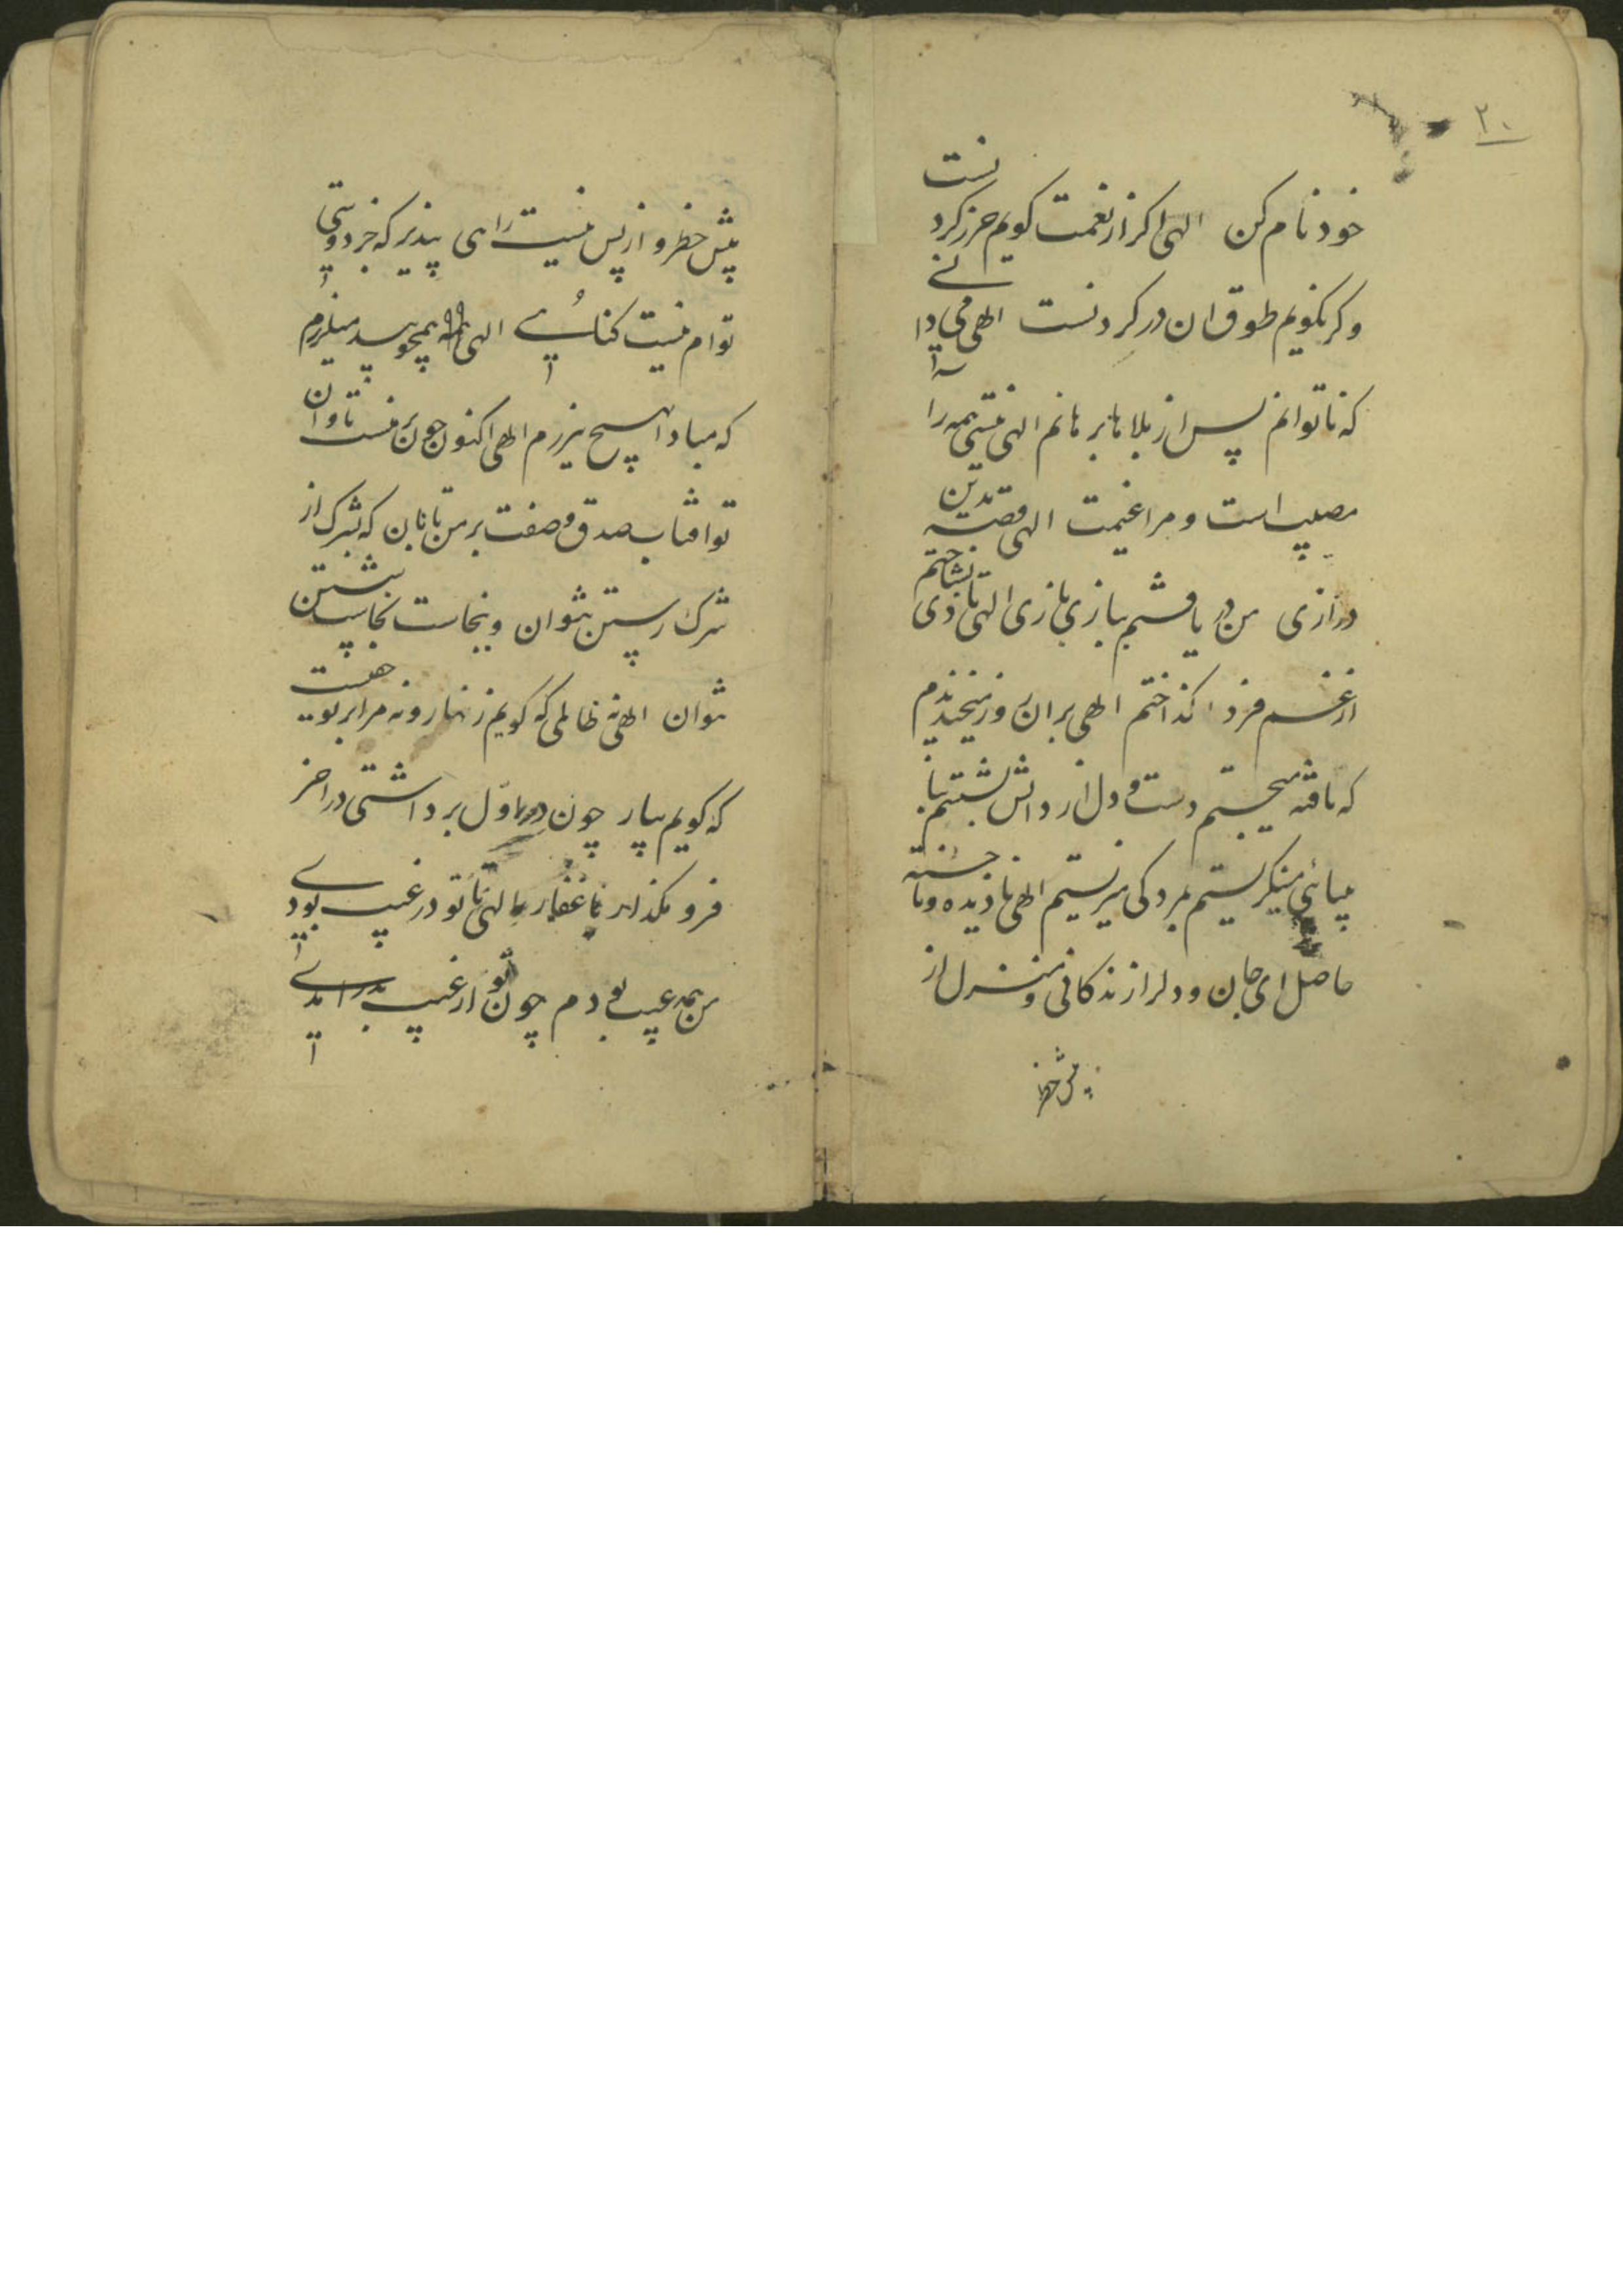 ۲۰
خود نام کن الهی اکر از نعمت کویم حرز کردنست
وکر نکویم طوق ان در کردنست الهی می دانی
که ناتوانم پس از بلاها برهانم الهی نیستی همه را
مصیبت است و مرا غنیمت الهی قصه بدین
درازی من دریافتم ببازی بازی الهی تا دی نشناختم
از غم فردا کداختم الهی بر ان روز میخندیدم
که نایافته میجستم دست و دل از دانش شستم با
بینائی مینکریستم بمردکی میزیستم الهی نادیده و ناجسته
حاصل ای جان و دلرا زندکانی و منزل از
پیش خطر
پیش خطر و از پس نیست راهی بپذیر که جز دوستی
توام نیست پناهی الهی همه همچو بید میلرزم
که مبادا بهیچ نیرزم الهی اکنون چون بر منست تاوان
تو افتاب صدق و صفت بر من تابان که بشرک از
شرک رستن نتوان و بنجاست نجاست شستن
نتوان الهی نه ظالمی که کویم زنهار و نه مرا بر تو حقیست
که کویم بیار چون در اول برداشتی در اخر
فرو مکذار یا غفار الهی تا تو در غیب بودی
من همه عیب بودم چون تو از غیب بدر امدی